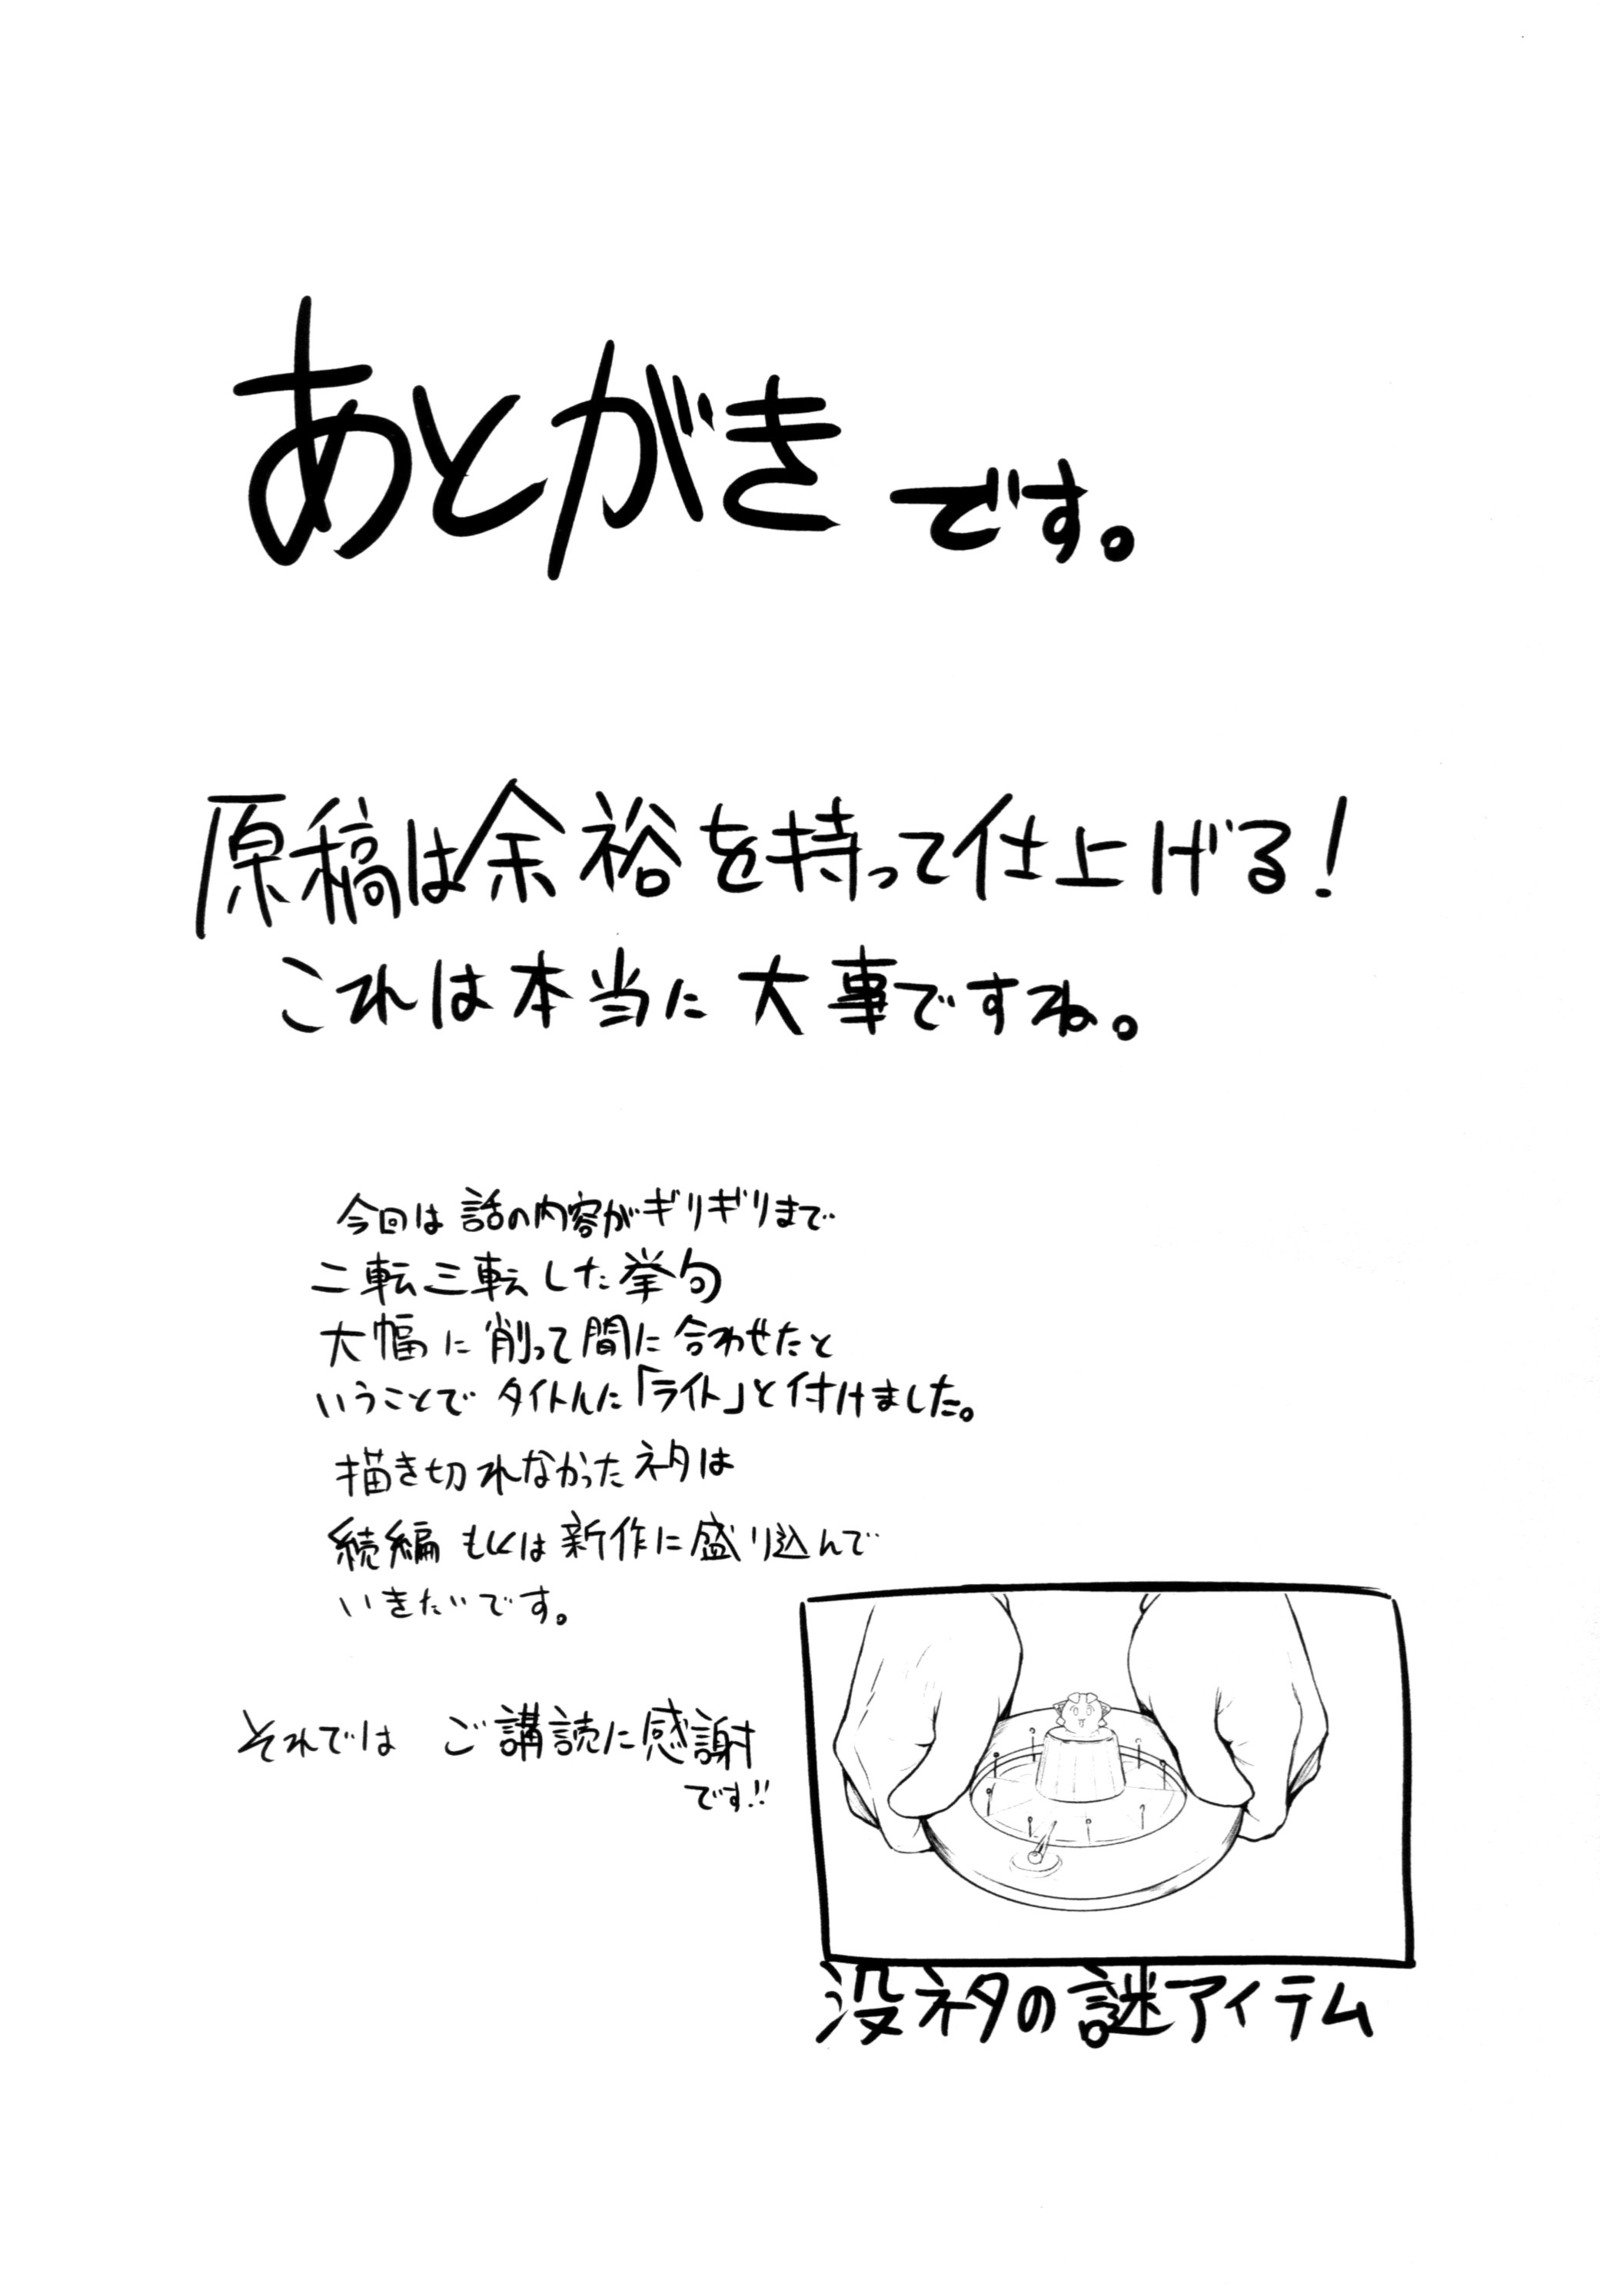 あとがきです。
原稿は余裕を持って仕上げる!
これは本当に大事ですね。
今回は話の内容がギリギリまで
二転三転した挙句
大幅に削って間に合わせたと
いうことでタイトルに「ライト」と付けました。
描き切れなかったネタは
続編もしくは新作に盛り込んで
いきたいです。
それでは ご講読に感謝
です!!
没ネタの謎アイテム